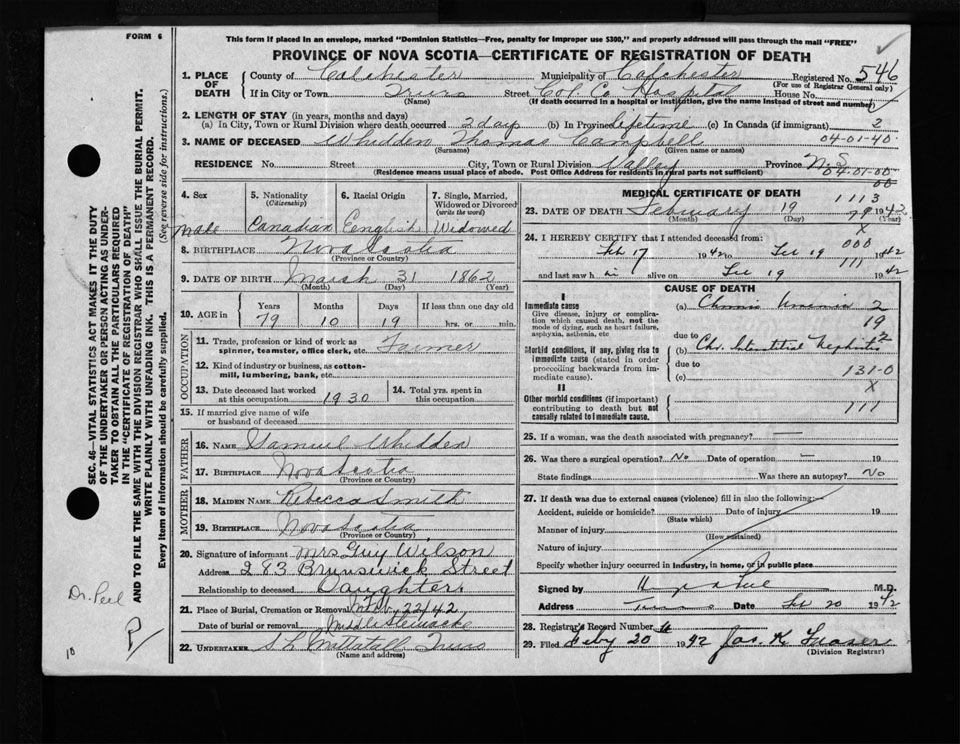 FORM 6
This form if placed in an envelope, marked "Dominion Statistics—Free, penalty for improper use $300," and properly addressed will pass through the mail "FREE"
PROVINCE OF NOVA SCOTIA—CERTIFICATE OF REGISTRATION OF DEATH
1. PLACE OF DEATH
County of Colchester Municipality of Colchester Registered No. 546
(For use of Registrar General only)
If in City or Town Truro Street Col. Co. Hospital House No.
(If death occurred in a hospital or institution, give the name instead of street and number)
2. LENGTH OF STAY (in years, months and days)
(a) In City, Town or Rural Division where death occurred 2 day (b) In Province lifetime (c) In Canada (if immigrant) 2
3. NAME OF DECEASED Whidden Thomas Campbell 04-01-40
(Surname) (Given name or names)
RESIDENCE No. Street City, Town or Rural Division Valley Province N.S
(Residence means usual place of abode. Post Office Address for residents in rural parts not sufficient)
04-01-00
00
4. Sex
male
5. Nationality
(Citizenship)
Canadian
6. Racial Origin
English
7. Single, Married, Widowed or Divorced
(write the word)
Widowed
8. BIRTHPLACE Nova Scotia
(Province or Country)
9. DATE OF BIRTH March 31 1862
(Month) (Day) (Year)
10. AGE in
Years Months Days If less than one day old
79 10 19 hrs. or min.
OCCUPATION
11. Trade, profession or kind of work as
spinner, teamster, office clerk, etc. Farmer
12. Kind of industry or business, as cotton-
mill, lumbering, bank, etc.
13. Date deceased last worked
at this occupation 1930
14. Total yrs. spent in
this occupation
15. If married give name of wife
or husband of deceased
FATHER
16. NAME Samuel Whidden
17. BIRTHPLACE Nova Scotia
(Province or Country)
MOTHER
18. MAIDEN NAME Rebecca Smith
19. BIRTHPLACE Nova Scotia
(Province or Country)
20. Signature of informant Mrs Guy Wilson
Address 283 Brunswick Street
Relationship to deceased Daughter
21. Place of Burial, Cremation or Removal 22/42
Date of burial or removal Middle Stewiacke
22. UNDERTAKER Truro
(Name and address)
MEDICAL CERTIFICATE OF DEATH
1113
23. DATE OF DEATH February 19 79 1942
(Month) (Day) (Year)
X
24. I HEREBY CERTIFY that I attended deceased from:
000
Feb 17 1942 to Feb 19 1942
111
and last saw h im alive on Feb 19 1942
CAUSE OF DEATH
I
Immediate cause
Give disease, injury or complica-
tion which caused death, not the
mode of dying, such as heart failure,
asphyxia, asthenia, etc
(a) Chronic Uraemia 2
19
due to
Morbid conditions, if any, giving rise to
immediate cause (stated in order
proceeding backwards from im-
mediate cause).
(b) Chr. Interstitial Nephritis 2
due to
(c) 131-0
X
II
Other morbid conditions (if important)
contributing to death but not
causally related to immediate cause.
111
25. If a woman, was the death associated with pregnancy? —
26. Was there a surgical operation? No Date of operation —
State findings Was there an autopsy? No
27. If death was due to external causes (violence) fill in also the following:—
Accident, suicide or homicide? Date of injury 19
(State which)
Manner of injury
(How sustained)
Nature of injury
Specify whether injury occurred in industry, in home, or in public place
Signed by M.D.
Address Truro Date Feb 20 1942
28. Registrar's Record Number
29. Filed Feby 20 1942 Jas. K. Fraser
(Division Registrar)
SEC. 46—VITAL STATISTICS ACT MAKES IT THE DUTY
OF THE UNDERTAKER OR PERSON ACTING AS UNDER-
TAKER TO OBTAIN ALL THE PARTICULARS REQUIRED
IN THE "CERTIFICATE OF REGISTRATION OF DEATH"
AND TO FILE THE SAME WITH THE DIVISION REGISTRAR WHO SHALL ISSUE THE BURIAL PERMIT.
WRITE PLAINLY WITH UNFADING INK. THIS IS A PERMANENT RECORD.
Every item of information should be carefully supplied. (See reverse side for instructions.)
Dr. Peel
P
10